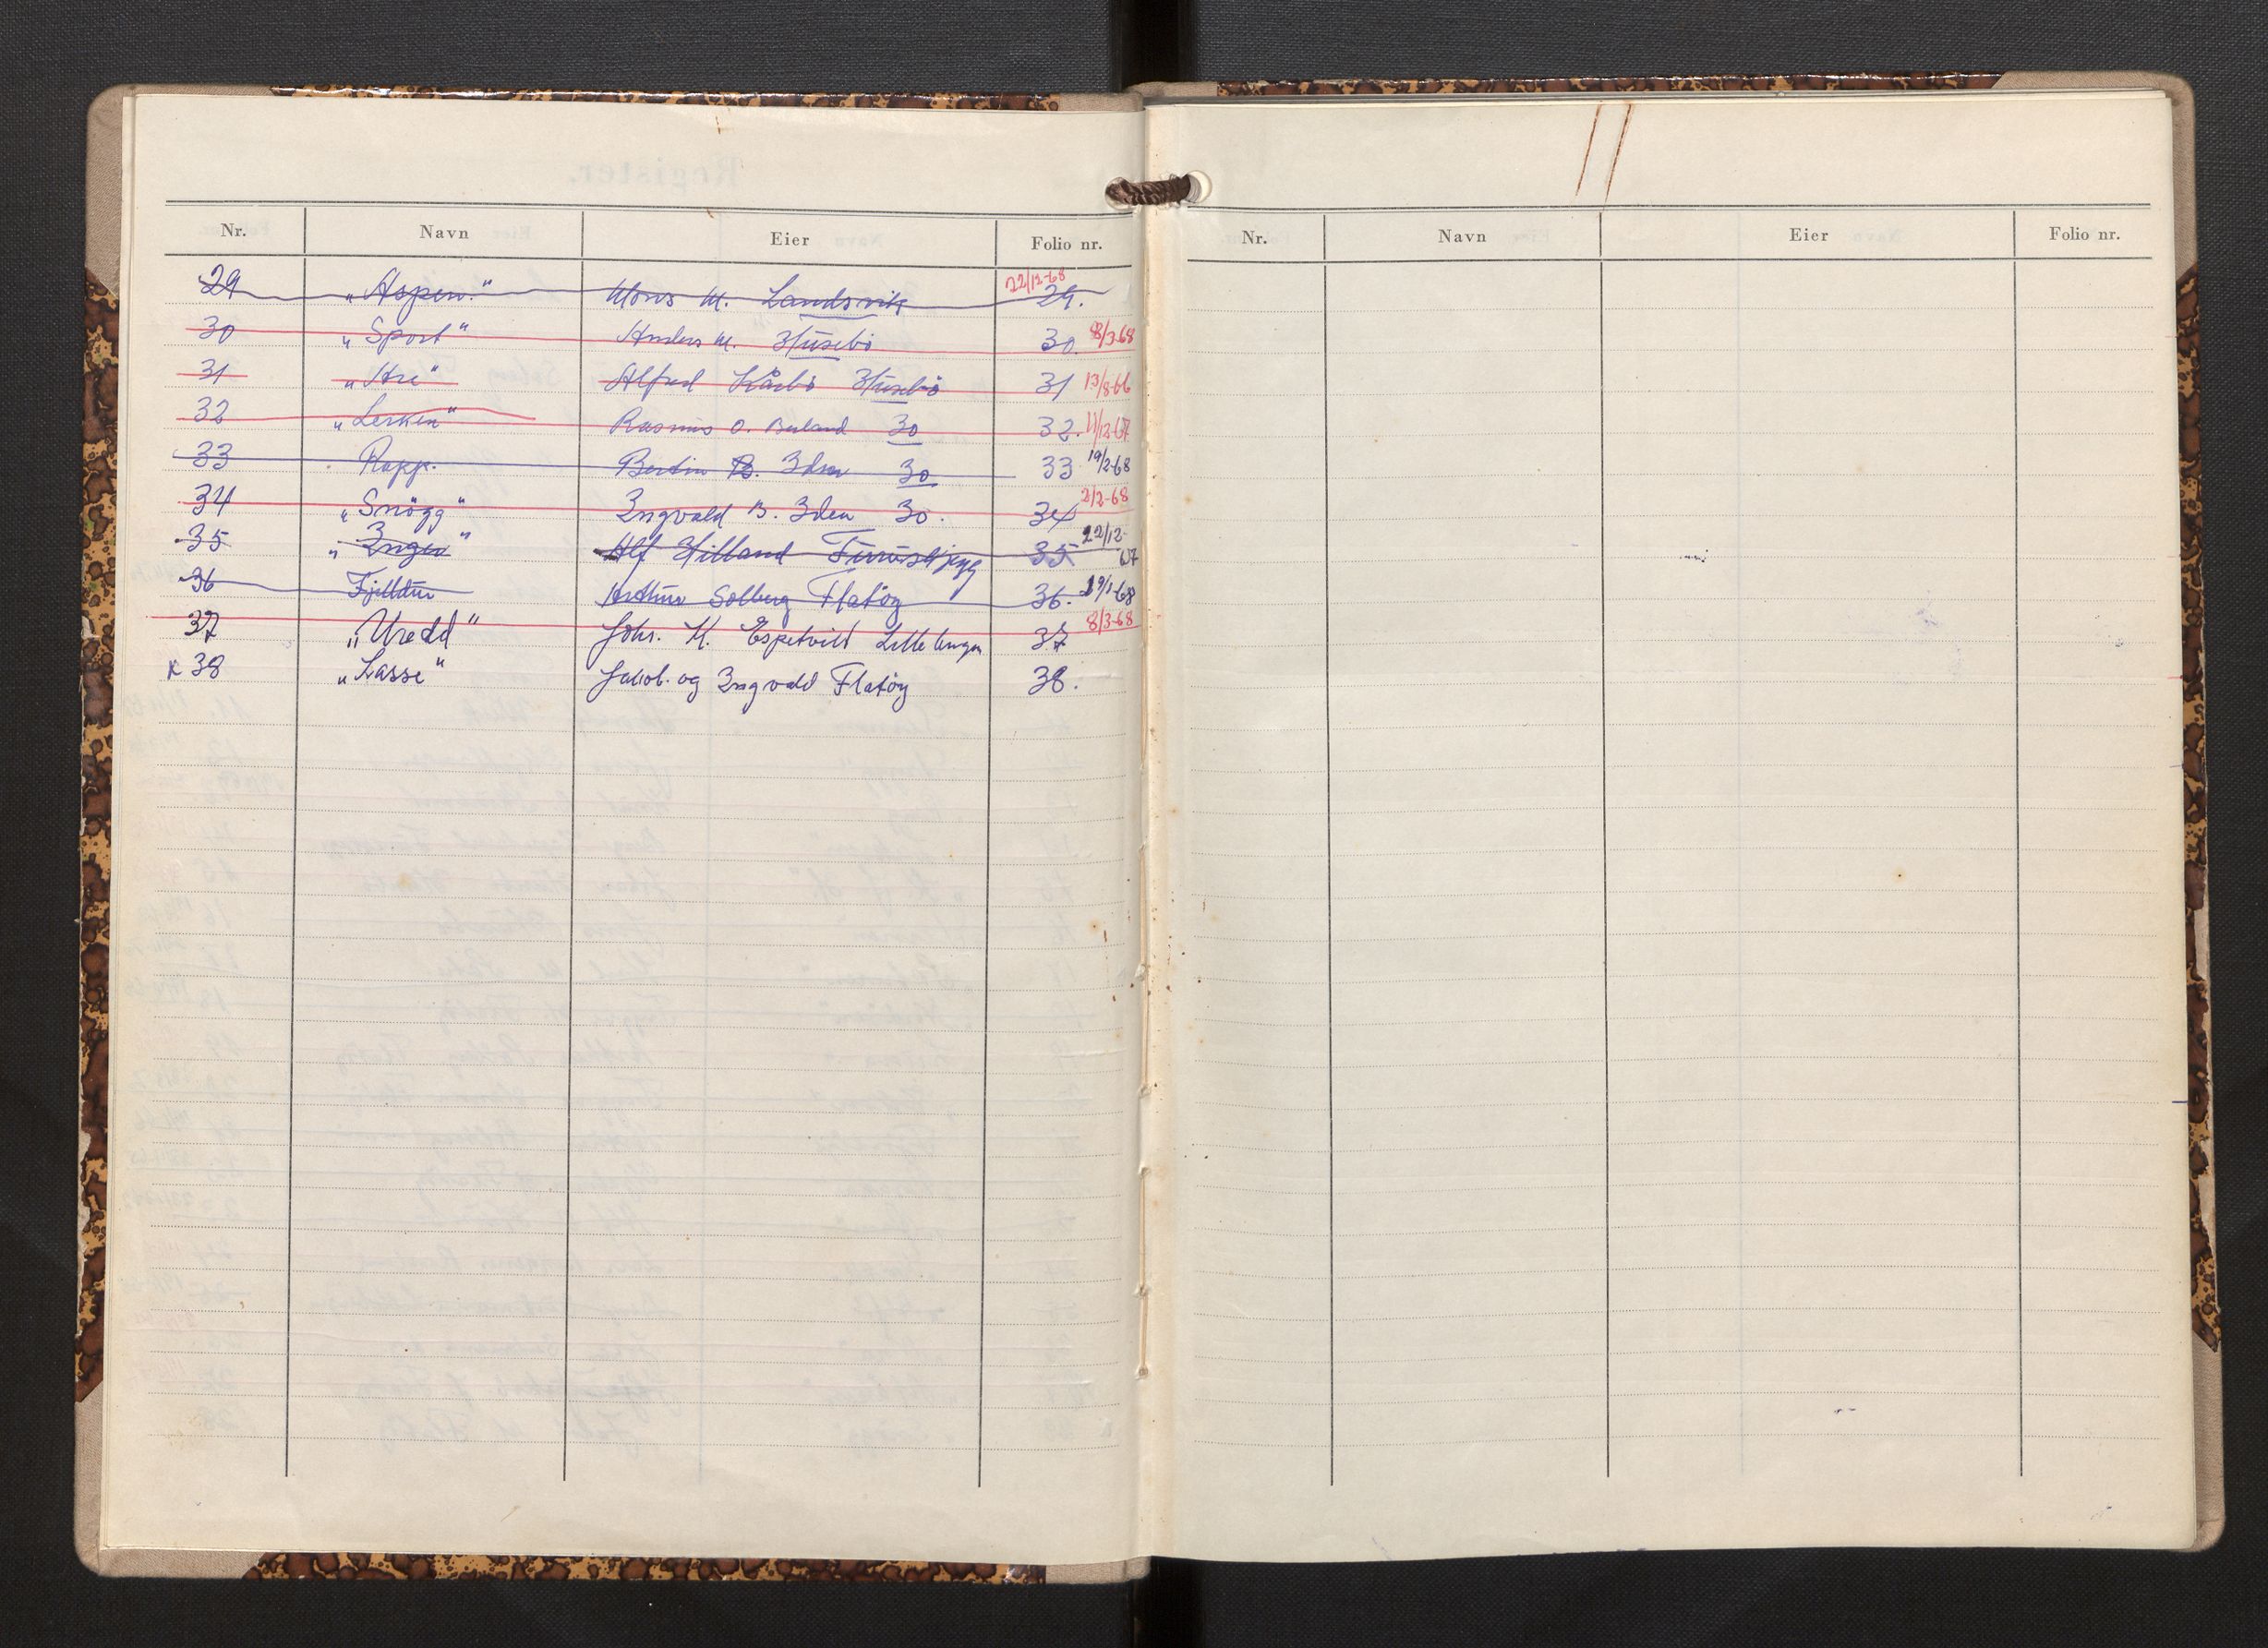 Nr. Navn Eier Folio nr.
29 "Aspen." Mons M. Landsvik 29. 22/12-68
30 "Sport" Anders M. Husebö 30. 8/3-68
31 "Are" Alfred Kårbö Husebö 31 13/8-66
32 "Lerken" Rasmus O. Buland 30 32. 11/12-67
33 Rapp. Bertin B. Iden 30 33 19/2-68
34 "Snögg" Ingvald B. Iden 30. 34 2/2-68
35 "Inger" Alf Hilland 35 22/12-67
36 Fjelldur Arthur Solberg Flatöy 36. 19/1-68
37 "Uredd" Johs. H. Espetvedt 37 8/3-68
x 38 "Lasse" Jakob. og Ingvald Flatöy 38.
Nr. Navn Eier Folio nr.